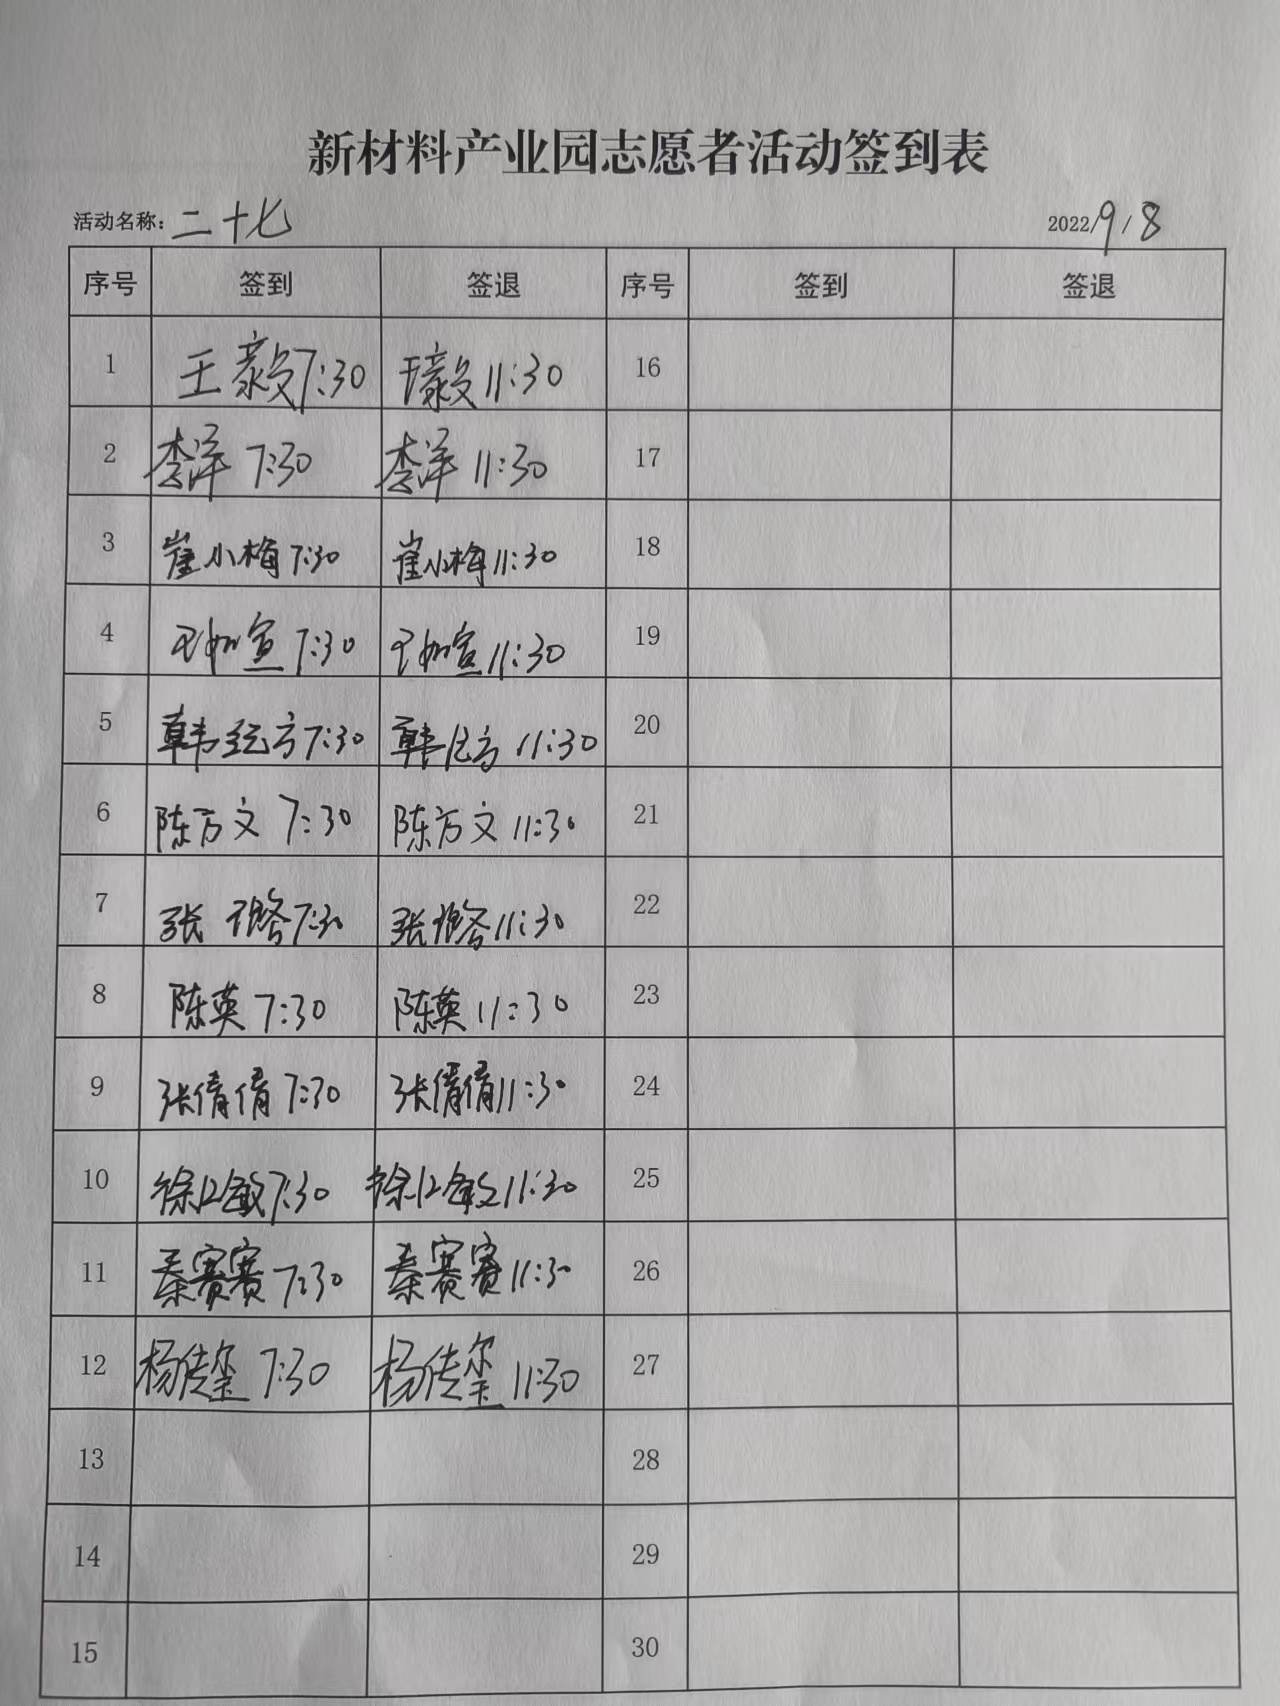 新材料产业园志愿者活动签到表
活动名称：二十七 2022/9/8
序号 签到 签退 序号 签到 签退
1 王毅 7:30 王毅 11:30 16
2 李洋 7:30 李洋 11:30 17
3 崔小梅 7:30 崔小梅 11:30 18
4 7:30 11:30 19
5 韩 方 7:30 韩 方 11:30 20
6 陈方文 7:30 陈方文 11:30 21
7 张 7:30 张 11:30 22
8 陈英 7:30 陈英 11:30 23
9 张倩倩 7:30 张倩倩 11:30 24
10 徐 敏 7:30 徐 敏 11:30 25
11 秦赛赛 7:30 秦赛赛 11:30 26
12 杨传玺 7:30 杨传玺 11:30 27
13 28
14 29
15 30